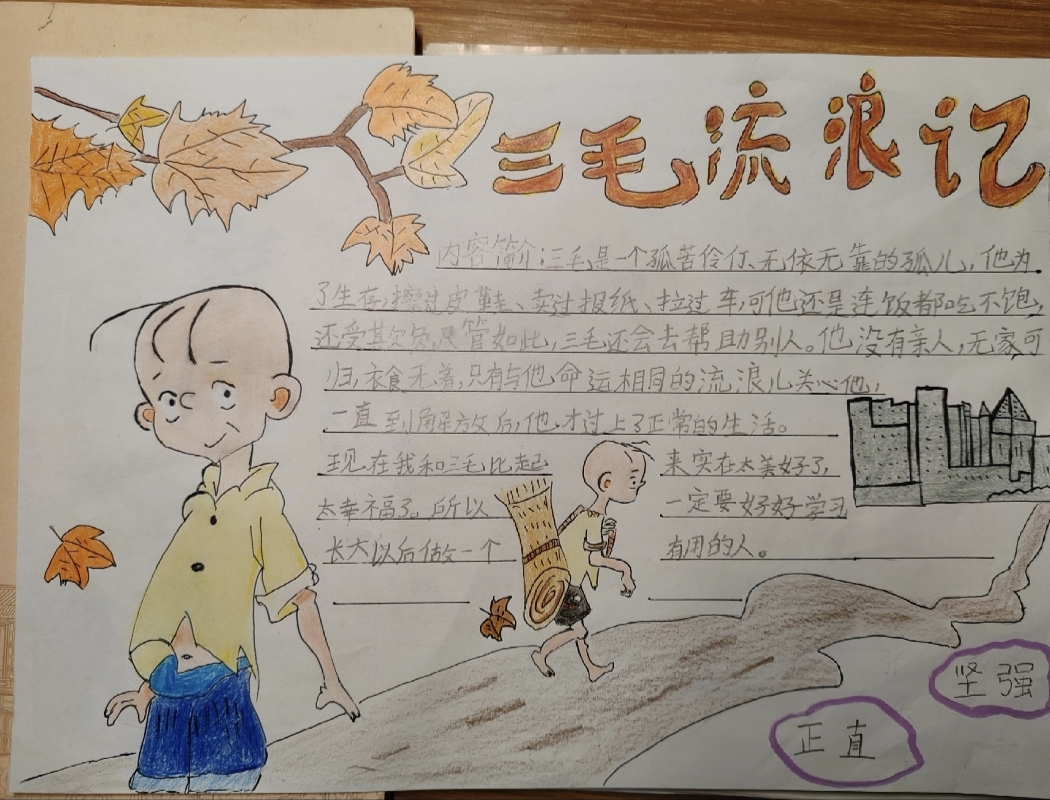 三毛流浪记
内容简介:三毛是一个孤苦伶仃、无依无靠的孤儿,他为
了生存,擦过皮鞋、卖过报纸、拉过车,可他还是连饭都吃不饱,
还受其欺负,尽管如此,三毛还会去帮助别人。他没有亲人,无家可
归,衣食无着,只有与他命运相同的流浪儿关心他,
一直到解放后,他才过上了正常的生活。
现在我和三毛比起 来实在太美好了,
太幸福了。所以 一定要好好学习
长大以后做一个 有用的人。
坚强
正直